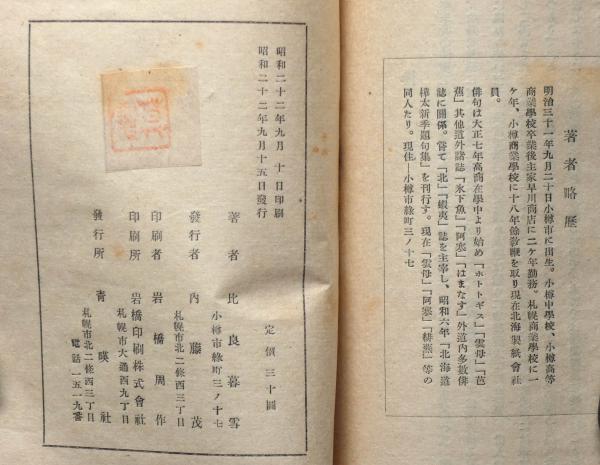 著者略歷
明治三十一年九月二十日小樽市に出生。小樽中學校、小樽高等
商業學校卒業後主家早川商店に二ケ年勤務。札幌商業學校に一
ケ年、小樽商業學校に十八年餘敎鞭を取り現在北海製紙會社
員。
俳句は大正七年高商在學中より始め「ホトトギス」「雲母」「芭
蕉」其他道外諸誌「氷下魚」「阿寒」「はまなす」外道內多數俳
誌に關係。嘗て「北」「蝦夷」誌を主宰し、昭和六年「北海道
樺太新季題句集」を刊行す。現在「雲母」「阿寒」「緋蕪」等の
同人たり。現住―小樽市綠町三ノ十七
昭和二十二年九月 十日印刷
昭和二十二年九月十五日發行
定價三十圓
著者 比良暮雪
小樽市綠町三ノ十七
發行者 內藤茂
札幌市北二條西三丁目
印刷者 岩橋周作
印刷所 岩橋印刷株式會社
札幌市大通西九丁目
發行所 靑暎社
札幌市北二條西三丁目
電話一五一九番